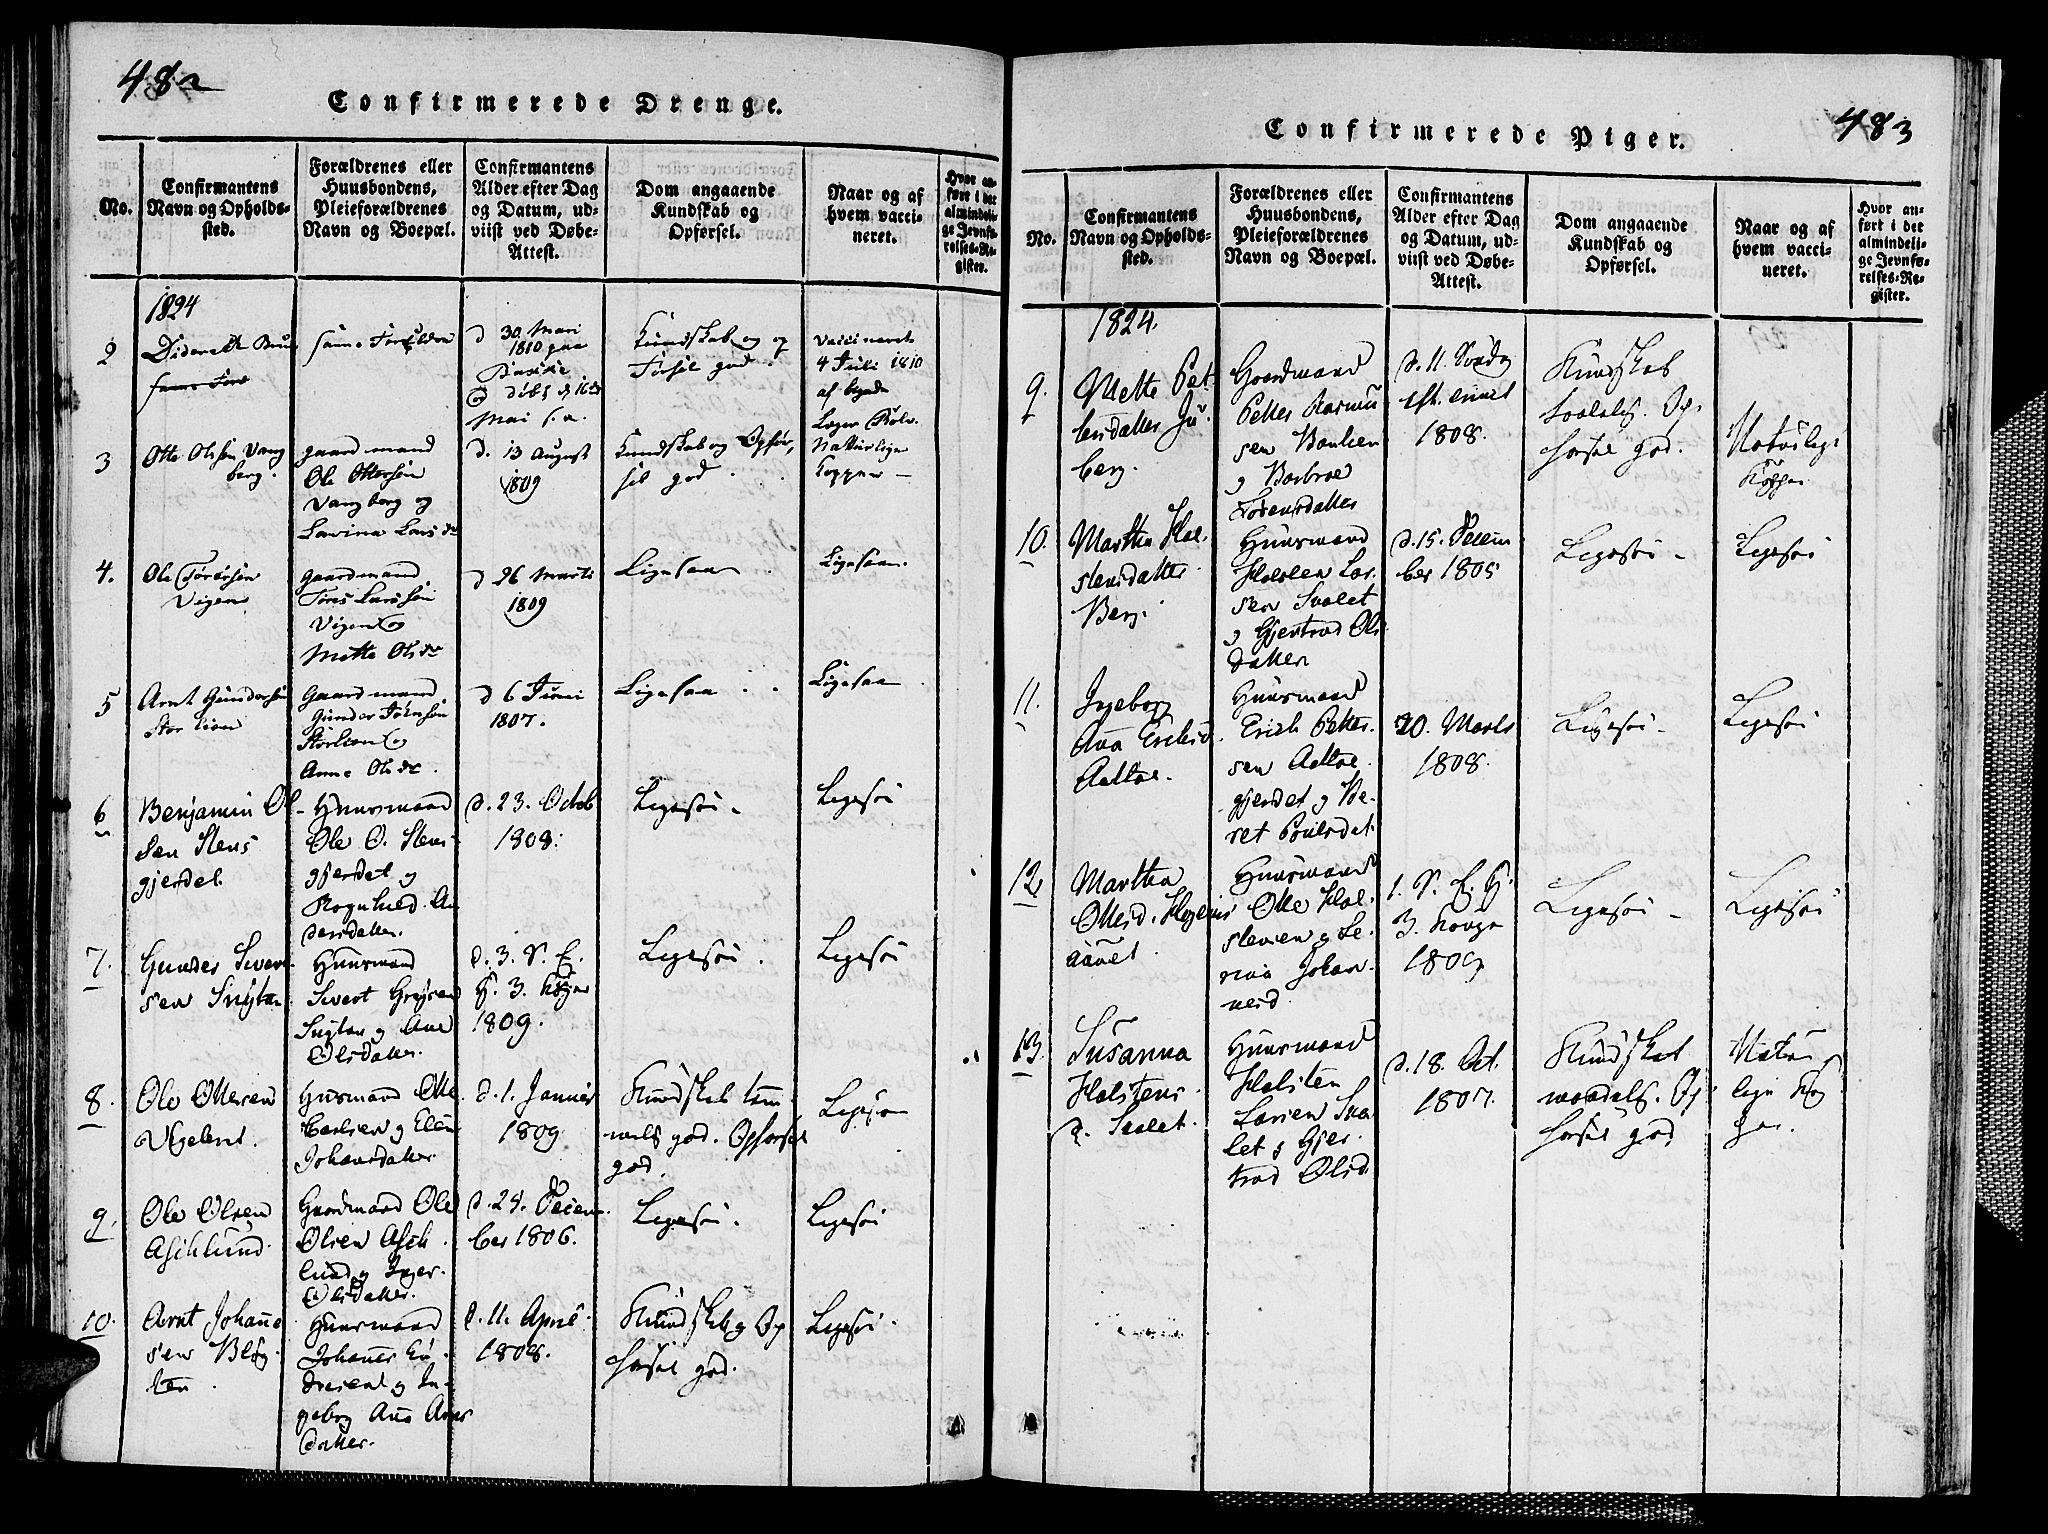 482
Confirmerede Drenge.
No.
Confirmantens
Navn og Opholds-
sted.
Forældrenes eller
Huusbondens,
Pleieforældrenes
Navn og Boepæl.
Confirmantens
Alder efter Dag
og Datum, ud-
viist ved Døbe-
Attest.
Dom angaaende
Kundskab og
Opførsel.
Naar og af
hvem vacci-
neret.
Hvor an-
ført i det
almindeli-
ge Jevnfø-
relses-Re-
gister.
1824
2
Diderich
30 Mari
1810 paa
døbt d 16de
Mai s. a.
Kundskab og op
førsel god.
vaccineret
4 Juli 1810
af
3
Otto Olsen Vang
berg.
gaardmand
Ole Ottersen
Vangberg og
Lavina Lars dr
d. 13 August
1809
Kundskab og Opfør,
sel god
Naturlige
kopper
4.
Ole Toresen
Vigen
gaardmand
Tores Larssen
Vigen og
Mette Ols dr
d 26 Marts
1809
Ligesaa
Ligesaa.
5
Arnt Gundersen
Storlien
Gaardmand
Gunder Johnsen
Storlien og
Anne Ols dr.
d 6 Juni
1807.
Ligesaa
Ligesaa
6
Benjamin Ol-
sen Stens
gjerdet.
Huusmand
Ole O. Stens
gjerdet og
Ragnhild An
dersdatter.
d. 23. Octob
1808.
Ligesaa
Ligesaa
7.
Gunder Sivert
sen
Huusmand
Sivert
og Ane
Olsdatter.
d. 3. S. E.
H. 3. Konger
1809.
Ligesaa
Ligesaa
8.
Ole Ottesen
Husmand Otte
og Elen
Johansdatter
d. 1. Januar
1809
Kundskab tem
melig god. Opførsel
god.
Ligesaa
9.
Ole Olsen
Aschlund
Gaardmand Ole
Olsen Asch
lund og Inger
Olsdatter.
d. 24. Decem
ber 1806.
Ligesaa.
Ligesaa
10.
Arnt Johanne
sen
Huusmand
Johannes En
dresen og In
geborg Ana Arns
datter.
d. 11. April
1808.
Kundskab og Op
førsel god.
Ligesaa
483
Confirmerede Piger.
No.
Confirmantens
Navn og Opholds-
sted.
Forældrenes eller
Huusbondens,
Pleieforældrenes
Navn og Boepæl.
Confirmantens
Alder efter Dag
og Datum, ud-
viist ved Døbe-
Attest.
Dom angaaende
Kundskab og
Opførsel.
Naar og af
hvem vacci-
neret.
Hvor an-
ført i det
almindeli-
ge Jevnfø-
relses-Re-
gister.
1824.
9.
Mette Pet
tersdatter Ju
berg.
Gaardmand
Petter Rasmu
sen
og Barbroe
Torensdatter
d. 11. Søndag
eft. trinit
1808.
Kundskab
taalelig. Op
førsel god.
Naturlige
Kopper
10.
Martha Hol
stensdatter
Berg.
Huusmand
Holsten Lar
sen Svalet
og Gjertrud Ols
datter
d. 15. Decem
ber 1805
Ligesaa
Ligesaa
11.
Ingeborg
Ana Erichsd.
Aaltoe.
Huusmand
Erich Petter
sen Aaltoe
gjerdet og Be
ret Poulsdat.
20. Marts
1808.
Ligesaa
Ligesaa
12
Martha
Ottesd.
Huusmand
Otte Hol
stensen og Le
na Johan
nesd.
1. S. E. H.
3. Konger
1809
Ligesaa
Ligesaa
13.
Susanna
Holstens
d. Svalet.
Huusmand
Holsten
Larsen Sva
let & Gjer
trud Olsd.
d. 18. Oct.
1807.
Kundskab
maadelig. Op
førsel god
Natur
lige Kop
per.